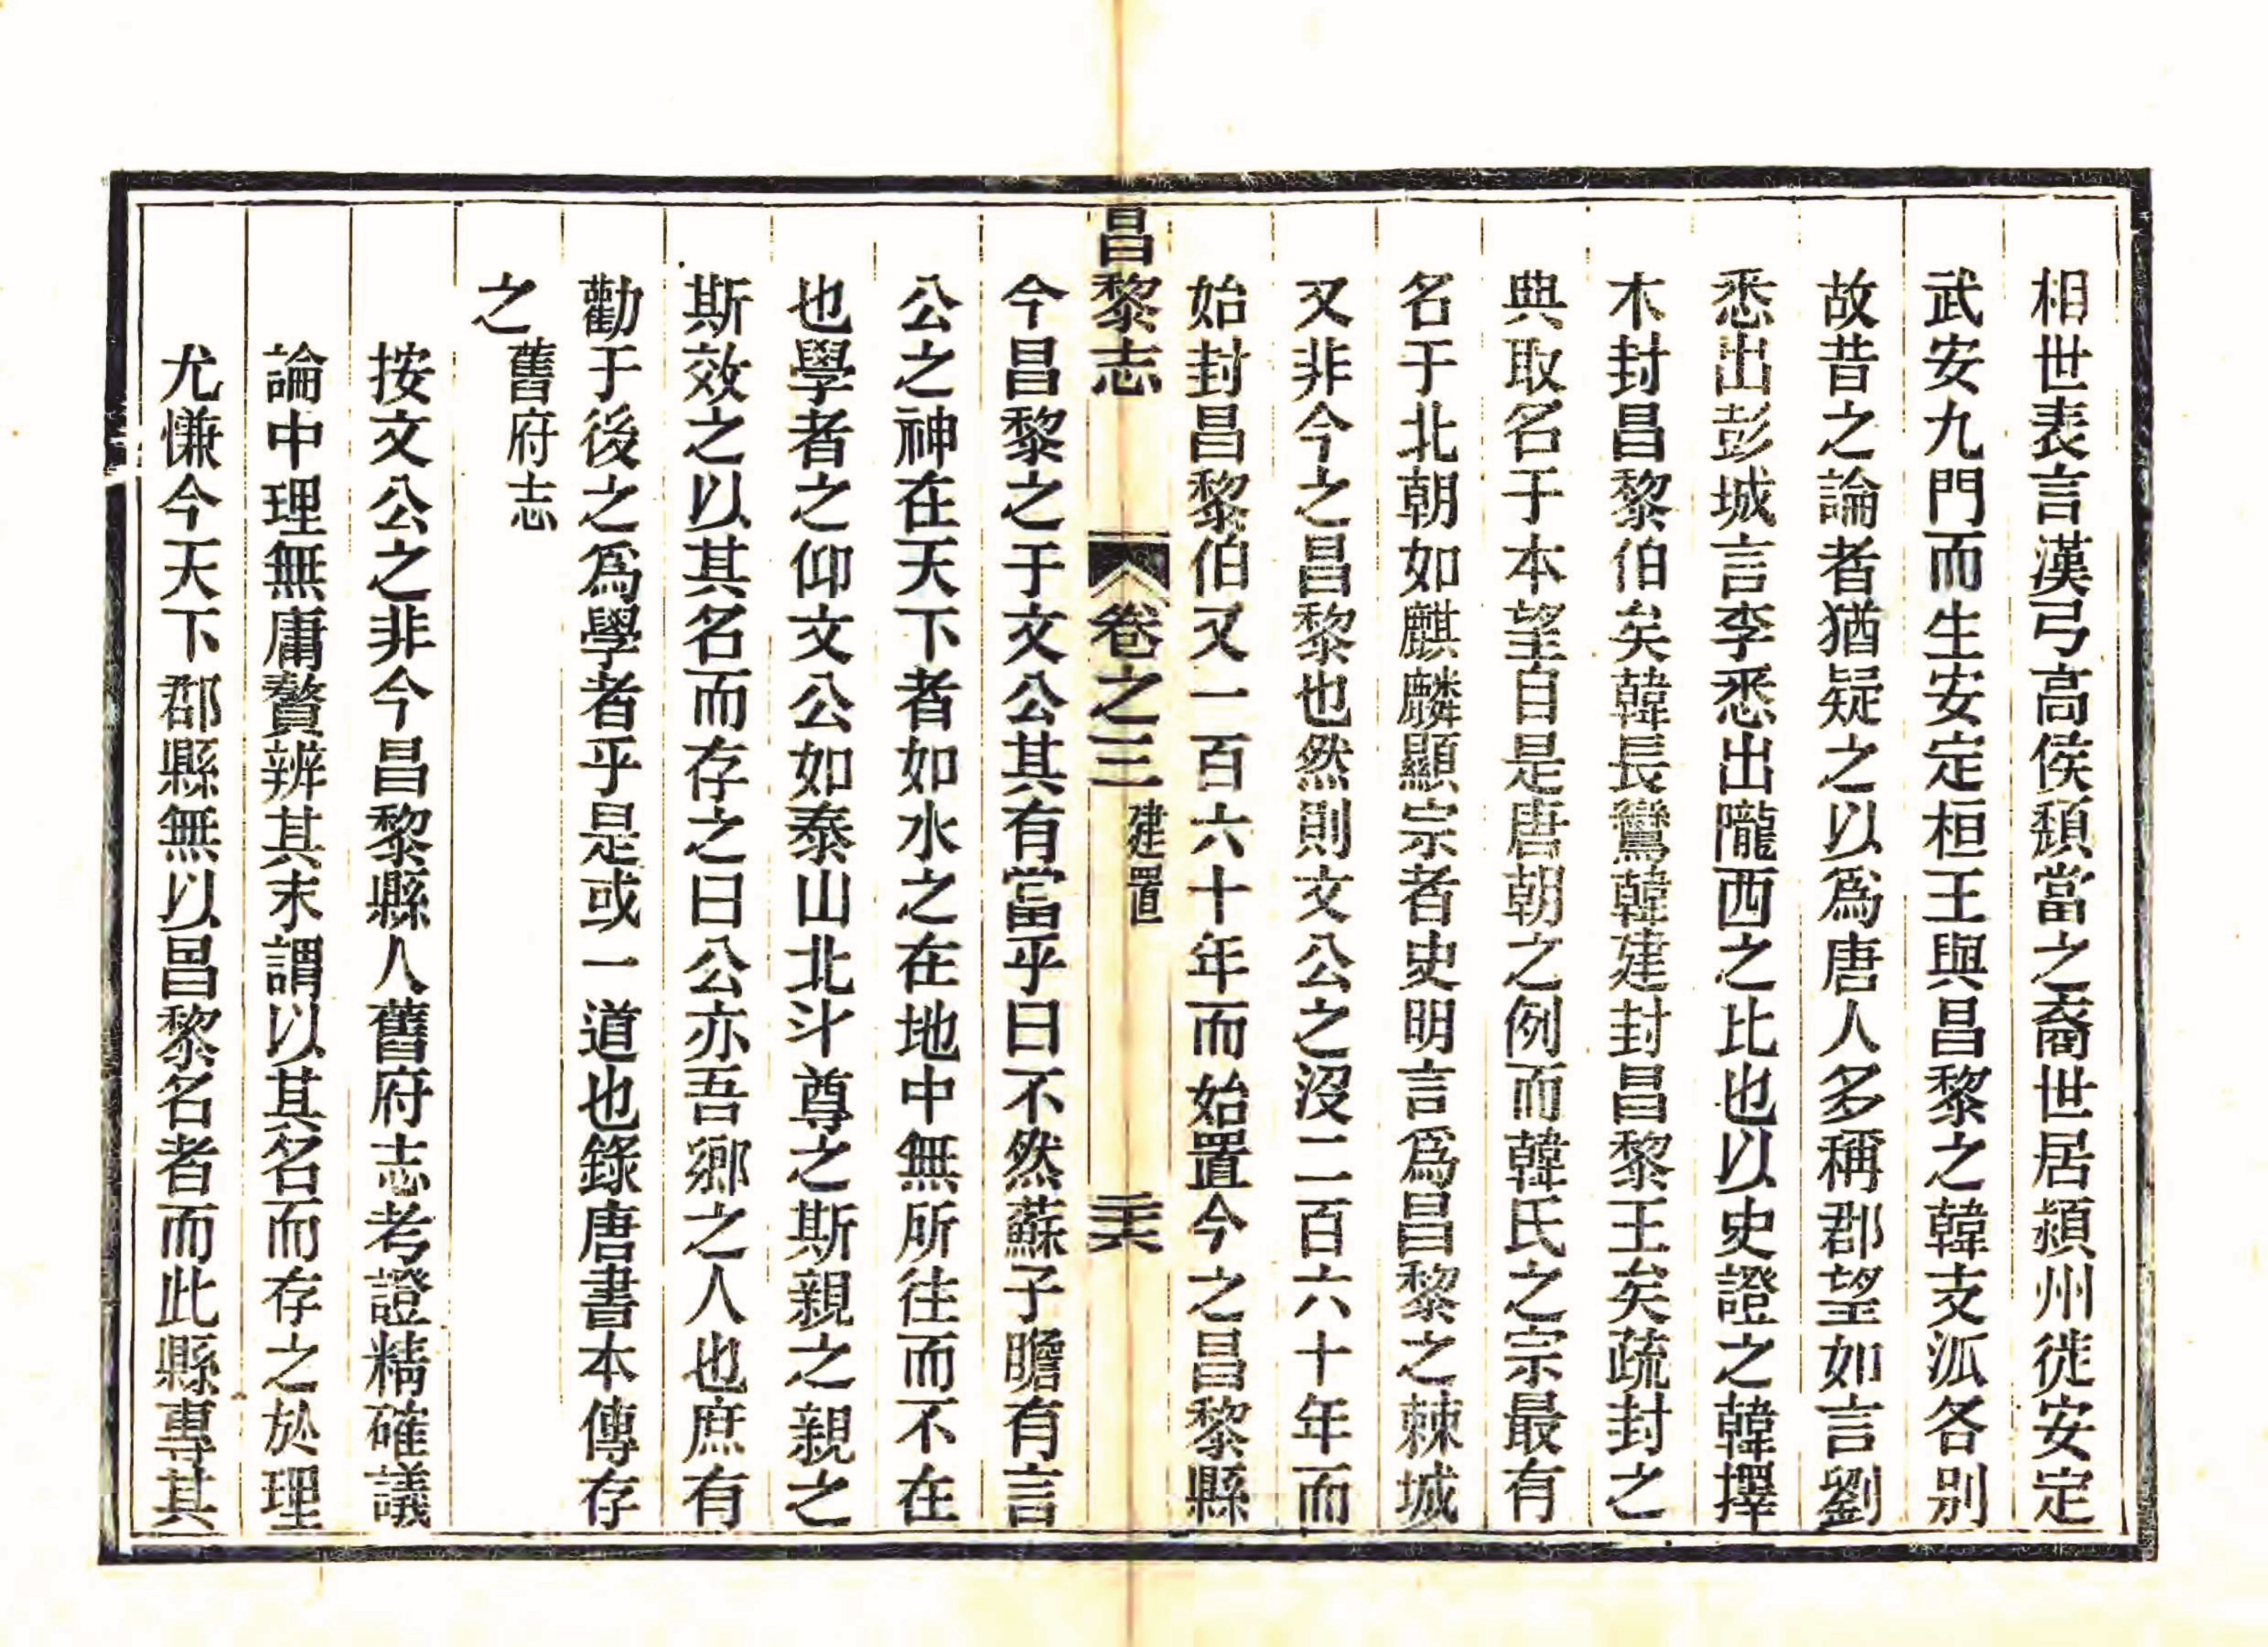 相世表言漢弓高侯頹當之裔世居潁州徙安定
武安九門而生安定桓王與昌黎之韓支派各別
故昔之論者猶疑之以爲唐人多稱郡望如言劉
悉出彭城言李悉出隴西之比也以史證之韓擇
木封昌黎伯矣韓長鸞韓建封昌黎王矣疏封之
典取名于本望自是唐朝之例而韓氏之宗最有
名于北朝如麒麟顯宗者史明言爲昌黎之棘城
又非今之昌黎也然則文公之沒二百六十年而
始封昌黎伯又一百六十年而始置今之昌黎縣
昌黎志 卷之三 建置 三十六
今昌黎之于文公其有當乎曰不然蘇子瞻有言
公之神在天下者如水之在地中無所往而不在
也學者之仰文公如泰山北斗尊之斯親之親之
斯效之以其名而存之曰公亦吾鄉之人也庶有
勸于後之爲學者乎是或一道也錄唐書本傳存
之 舊府志
按文公之非今昌黎縣人舊府志考證精確議
論中理無庸贅辨其末謂以其名而存之於理
尤慊今天下郡縣無以昌黎名者而此縣專其